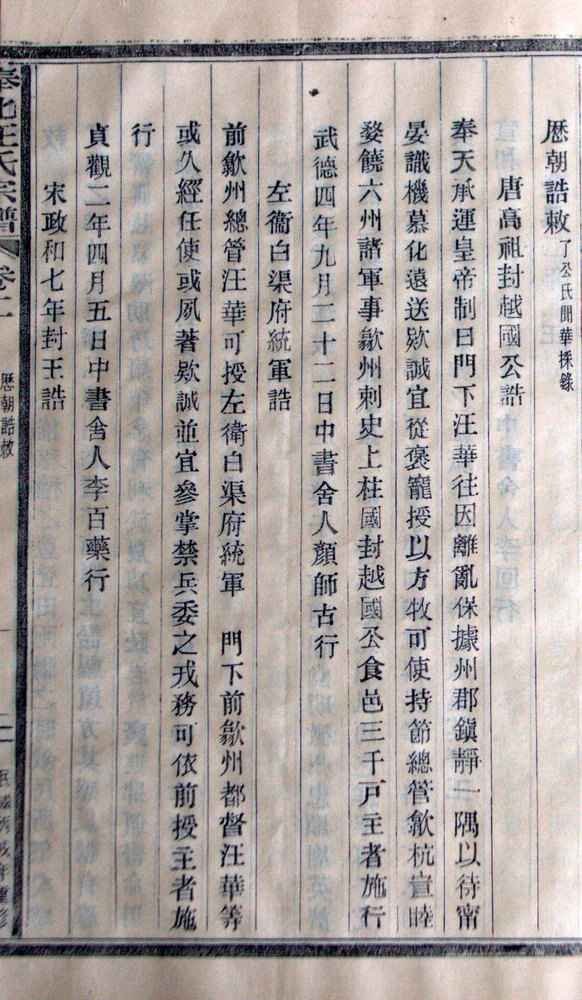 歷朝誥敕 了公氏聞華採錄
唐高祖封越國公誥
奉天承運皇帝制曰門下汪華往因離亂保據州郡鎭靜一隅以待甯
晏識機慕化遠送欵誠宜從褒寵授以方牧可使持節總管歙杭宣睦
婺饒六州諸軍事歙州刺史上柱國封越國公食邑三千戸主者施行
武德四年九月二十二日中書舍人顏師古行
左衞白渠府統軍誥
前歙州總管汪華可授左衛白渠府統軍 門下前歙州都督汪華等
或久經任使或夙著欵誠並宜參掌禁兵委之戎務可依前授主者施
行
貞觀二年四月五日中書舍人李百藥行
宋政和七年封王誥
奉化汪氏宗譜 卷二 歷朝誥敕 二 民國丙戌年重修